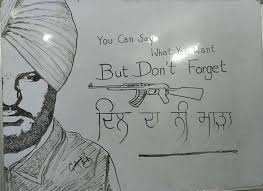 You Can Say
What You Want
But Don't Forget
ਦਿਲ ਦਾ ਨੀ ਮਾੜਾ